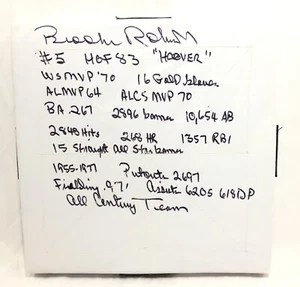 Brooks Robinson
#5 HOF 83 "HOOVER"
WS MVP '70 16 Gold Gloves
AL MVP 64 ALCS MVP 70
BA .267 2896 Games 10,654 AB
2848 Hits 268 HR 1357 RBI
15 Straight All Star Games
1955-1977 Putouts 2697
Fielding .971 Assists 6205 618 DP
All Century Team